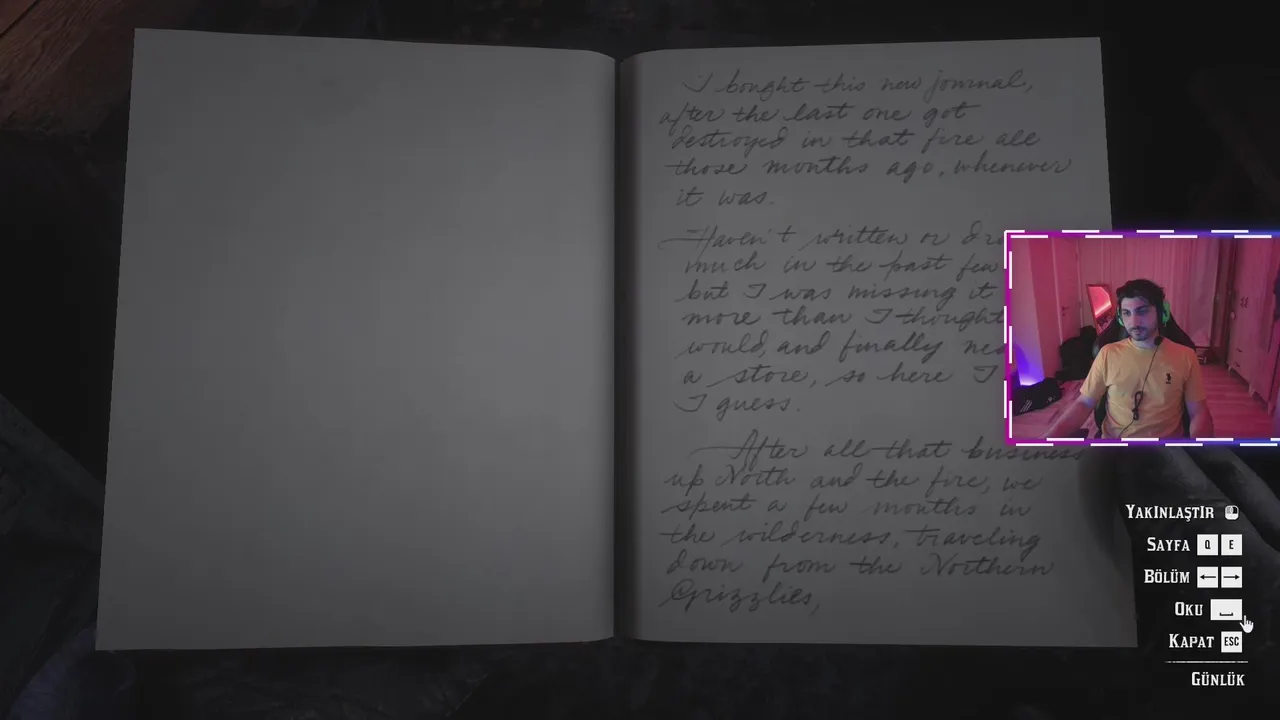 I bought this new journal,
after the last one got
destroyed in that fire all
those months ago, whenever
it was.
Haven't written or
much in the past few
but I was missing it
more than I thought
would, and finally
a store, so here I
I guess.
After all that business
up North and the fire, we
spent a few months in
the wilderness, traveling
down from the Northern
Grizzlies,
YAKINLAŞTIR
SAYFA Q E
BÖLÜM ← →
OKU
KAPAT ESC
GÜNLÜK